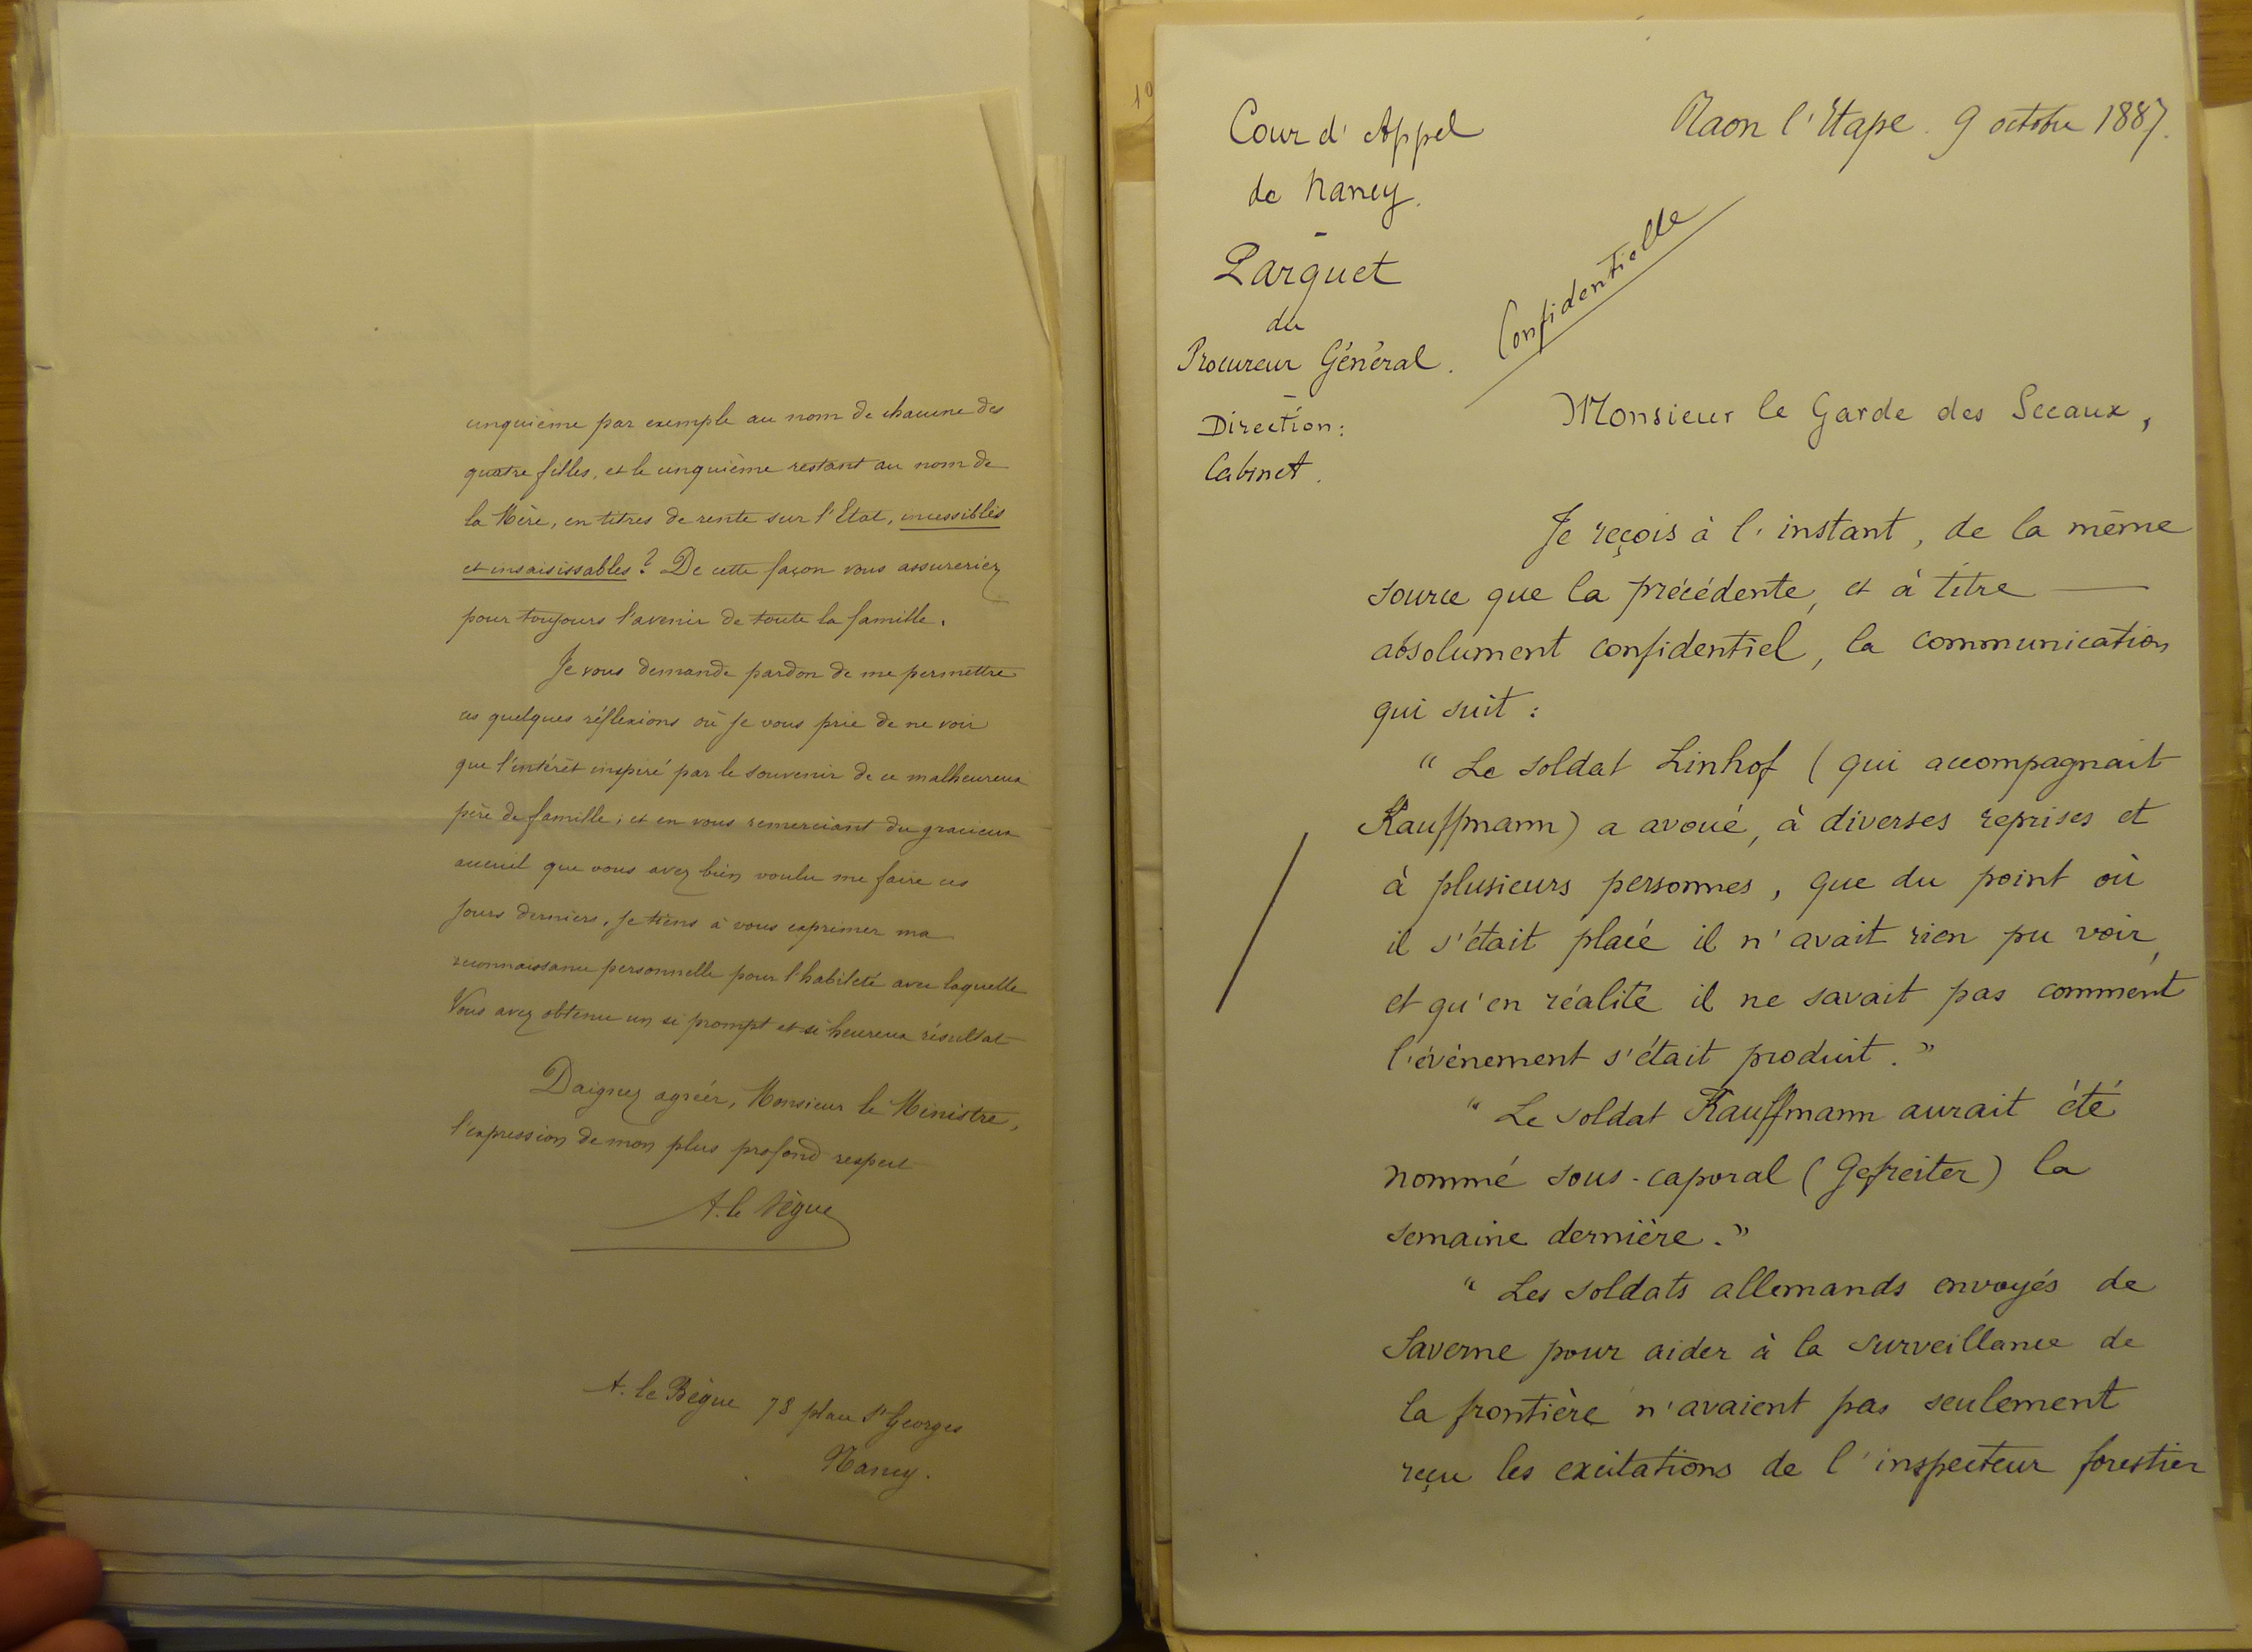 cinquième par exemple au nom de chacune des
quatre filles, et le cinquième restant au nom de
la Mère, en titres de rente sur l'Etat, incessibles
et insaisissables ? De cette façon vous assureriez
pour toujours l'avenir de toute la famille.
Je vous demande pardon de me permettre
ces quelques réflexions où je vous prie de ne voir
que l'intérêt inspiré par le souvenir de ce malheureux
père de famille ; et en vous remerciant du gracieux
accueil que vous avez bien voulu me faire ces
jours derniers, je tiens à vous exprimer ma
reconnaissance personnelle pour l'habileté avec laquelle
Vous avez obtenu un si prompt et si heureux résultat
Daignez agréer, Monsieur le Ministre,
l'expression de mon plus profond respect
A. le Bègue
A. le Bègue 78 place St Georges
Nancy.
Cour d'Appel
de Nancy.
-
Parquet
du
Procureur Général.
-
Direction :
Cabinet.
Raon l'Etape. 9 octobre 1887.
Confidentielle
Monsieur le Garde des Sceaux,
Je reçois à l'instant, de la même
source que la précédente, et à titre —
absolument confidentiel, la communication
qui suit :
" Le soldat Linhof ( qui accompagnait
Kauffmann) a avoué, à diverses reprises et
à plusieurs personnes, que du point où
il s'était placé il n'avait rien pu voir,
et qu'en réalité il ne savait pas comment
l'événement s'était produit. "
" Le soldat Kauffmann aurait été
nommé sous-caporal ( Gefreiter ) la
semaine dernière. "
" Les soldats allemands envoyés de
Saverne pour aider à la surveillance de
la frontière n'avaient pas seulement
reçu les excitations de l'inspecteur forestier